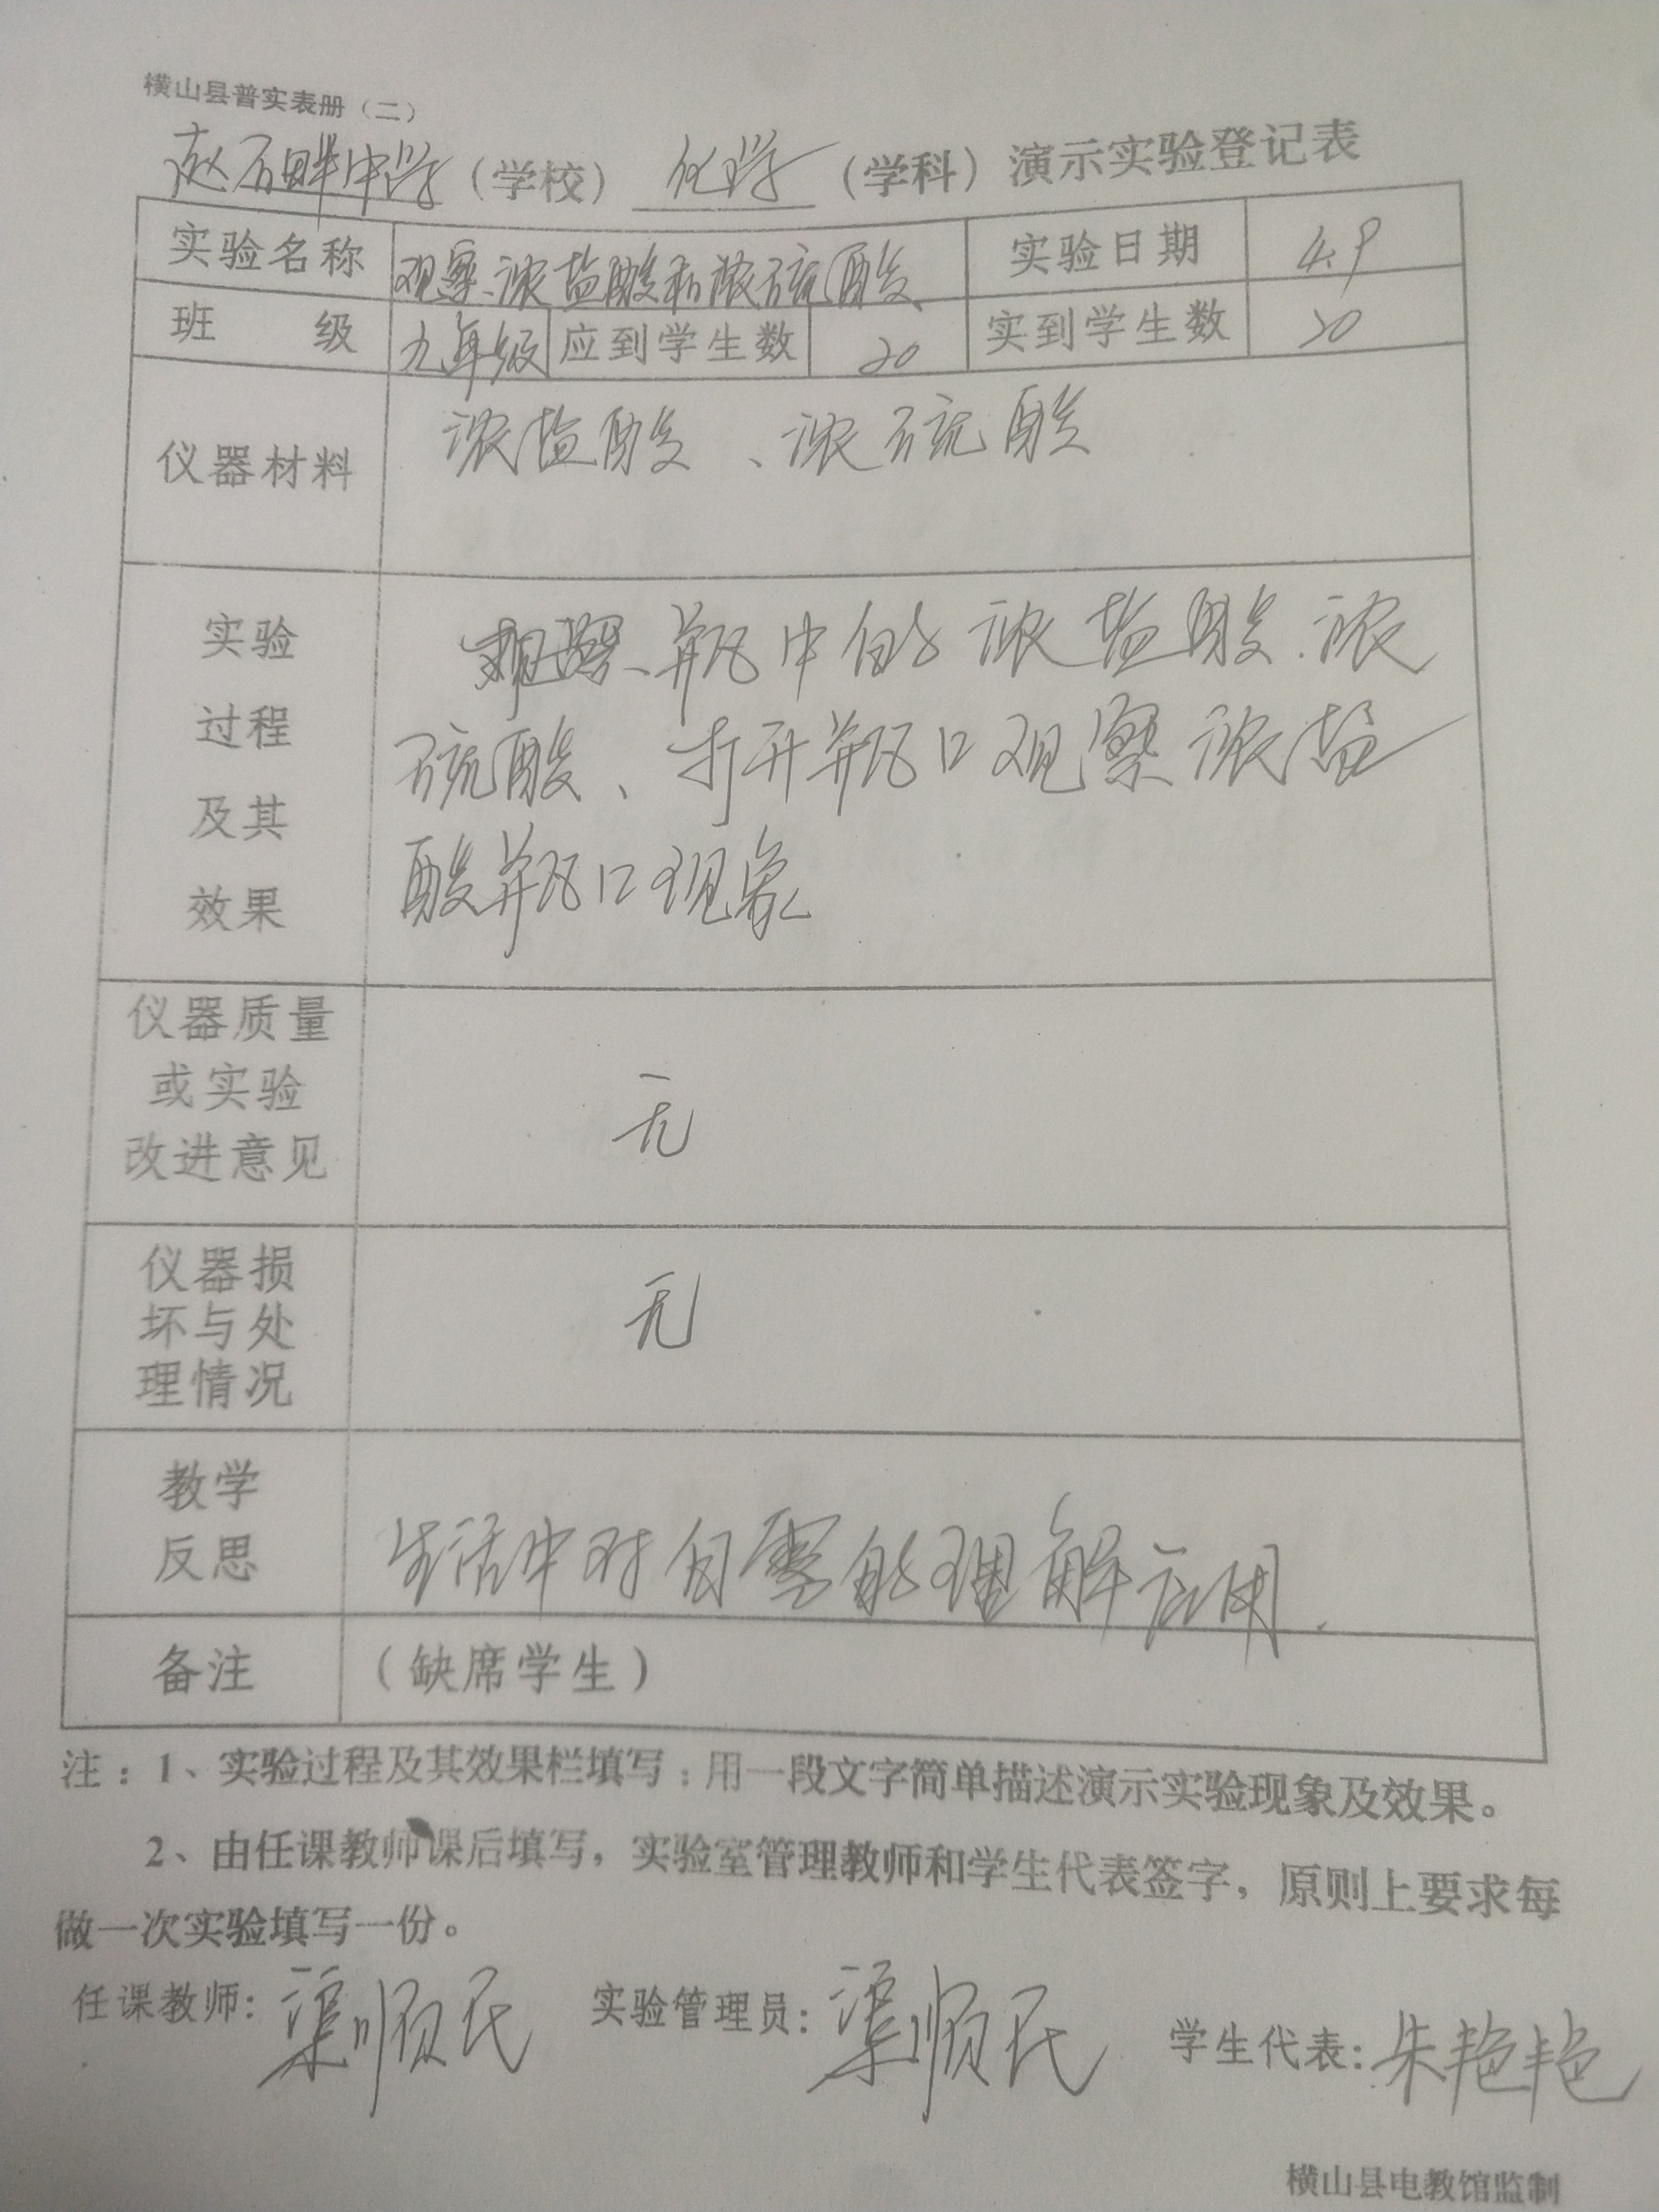 横山县普实表册（二）
赵石畔中学（学校） 化学 （学科）演示实验登记表
实验名称 观察浓盐酸和浓硫酸 实验日期 4.9
班 级 九年级 应到学生数 20 实到学生数 20
仪器材料 浓盐酸、浓硫酸
实验
过程
及其
效果
观察、瓶中的浓盐酸.浓
硫酸、打开瓶口观察浓盐
酸瓶口现象
仪器质量
或实验
改进意见
无
仪器损
坏与处
理情况
无
教学
反思
生活中对 能理解应用.
备注 （缺席学生）
注：1、实验过程及其效果栏填写：用一段文字简单描述演示实验现象及效果。
2、由任课教师课后填写，实验室管理教师和学生代表签字，原则上要求每
做一次实验填写一份。
任课教师: 渠顺民 实验管理员: 渠顺民 学生代表: 朱艳艳
横山县电教馆监制